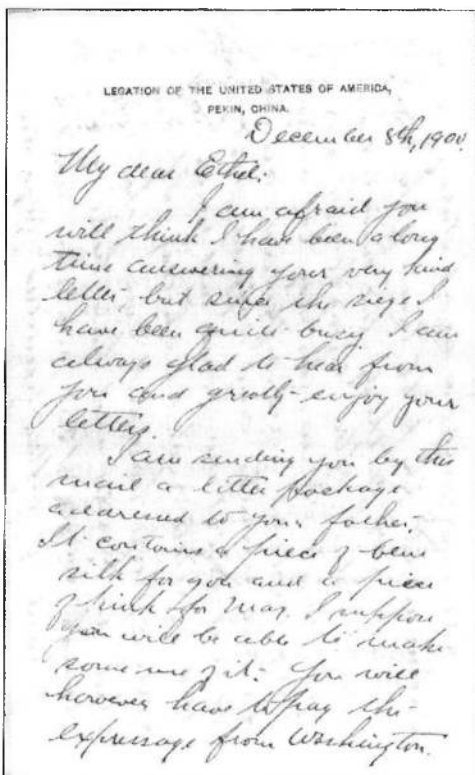 LEGATION OF THE UNITED STATES OF AMERICA,
PEKIN, CHINA.
December 8th, 1900.
My dear Ethel:
I am afraid you
will think I have been a long
time answering your very kind
letter, but since the siege I
have been quite busy. I am
always glad to hear from
you and greatly enjoy your
letters.
I am sending you by this
mail a letter package
addressed to your father.
It contains a piece of blue
silk for you and a piece
of pink for May. I suppose
you will be able to make
some use of it. You will
however have to pay the
expressage from Washington.